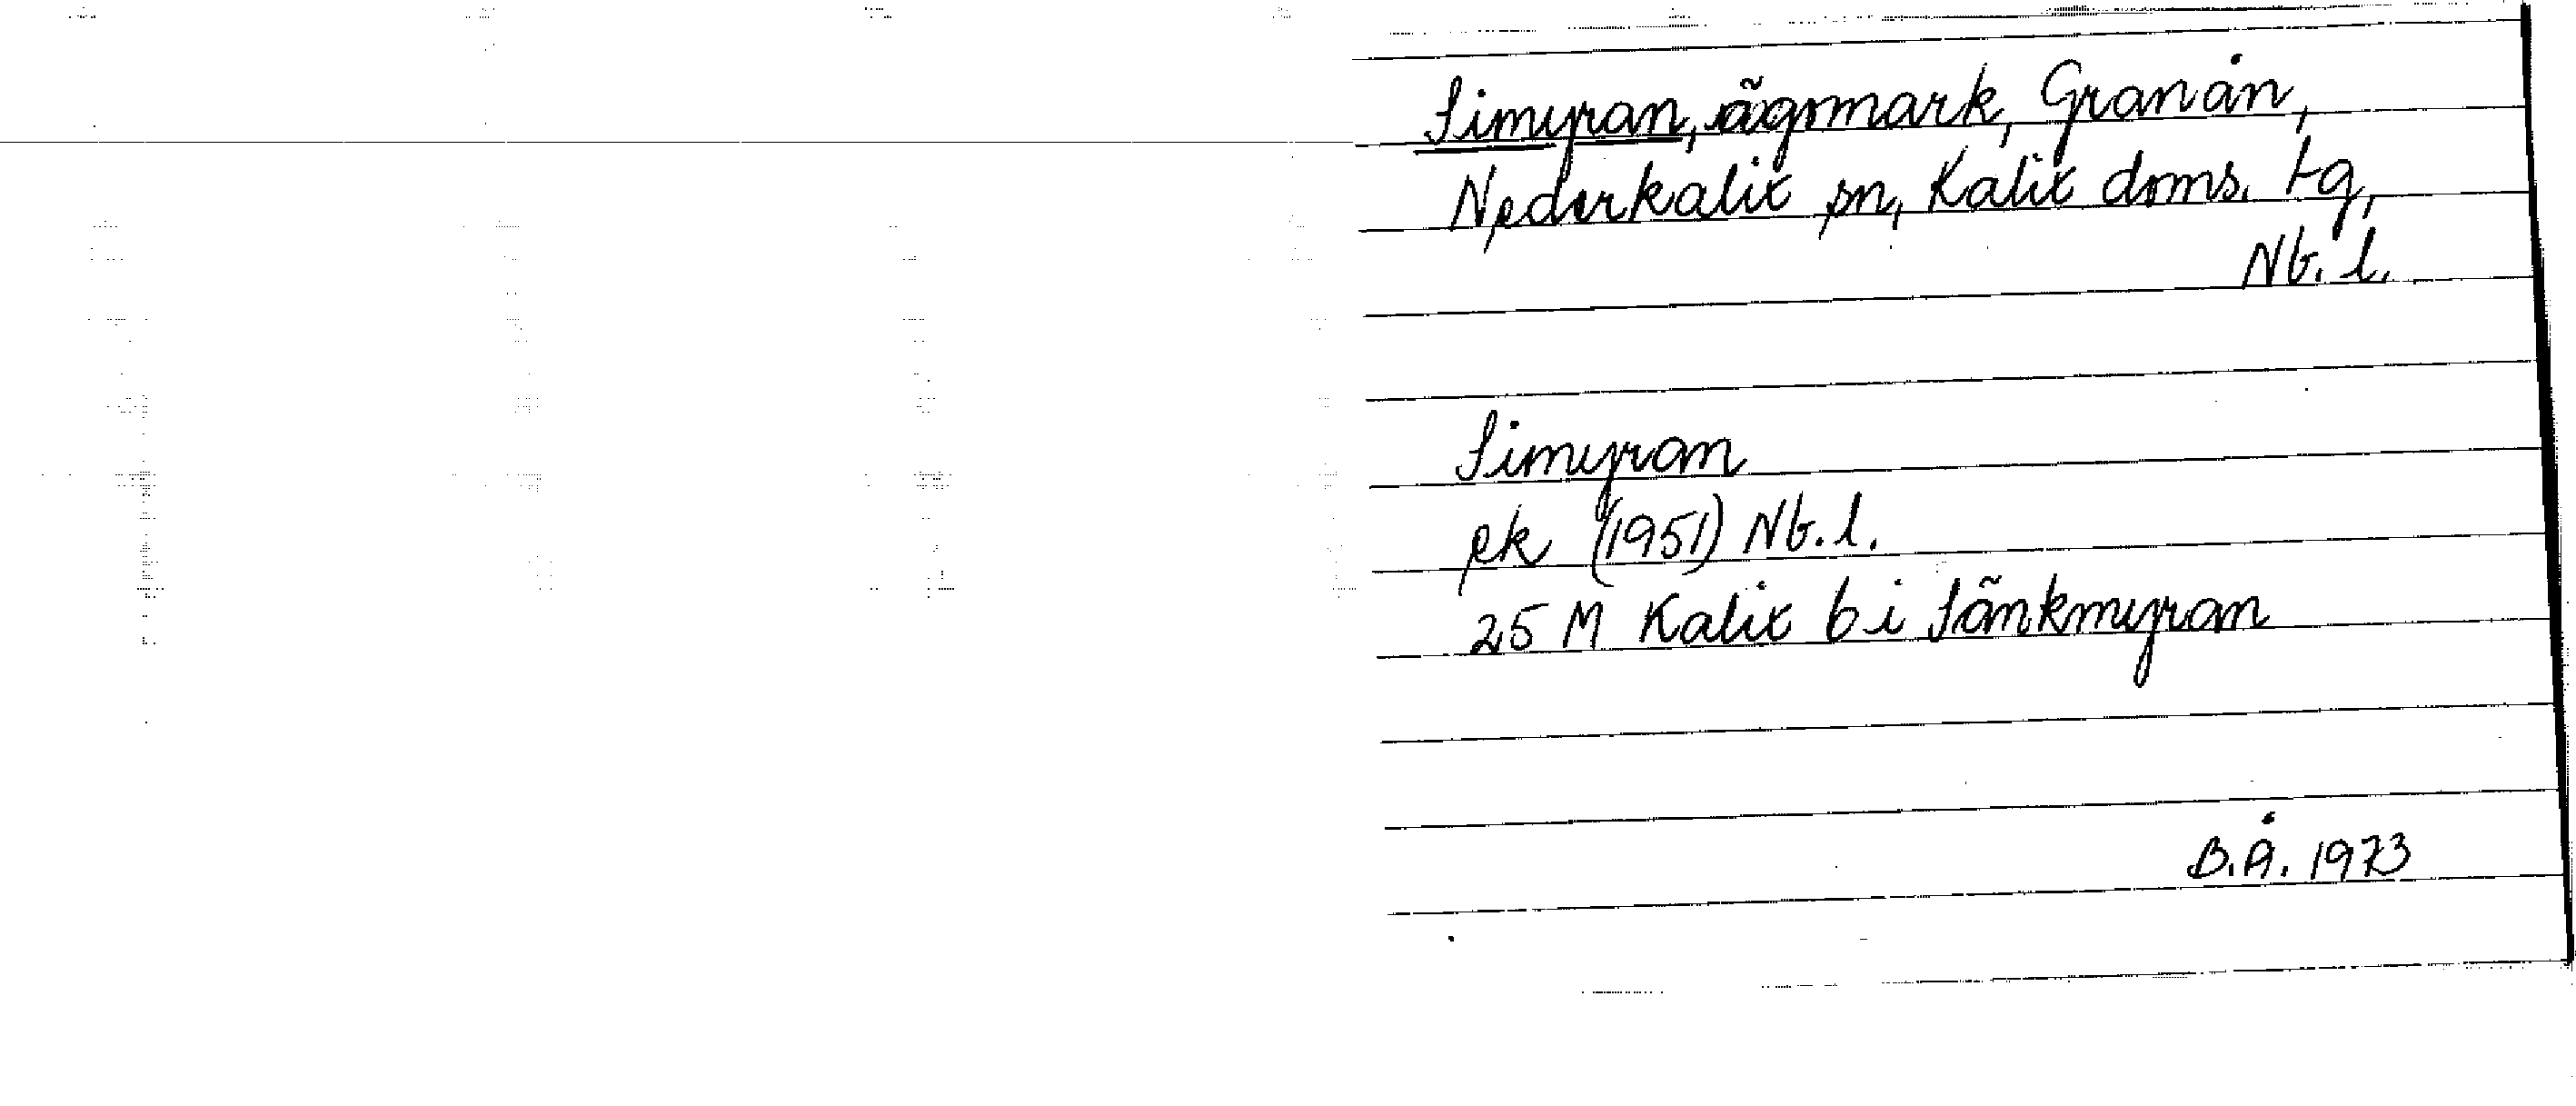 Simyran, ägomark, Granån,
Nederkalix sn, Kalix doms. tg,
Nb. l.
Simyran
ek (1951) Nb. l.
25 M Kalix 6 i Sänkmyran
B.Å. 1973